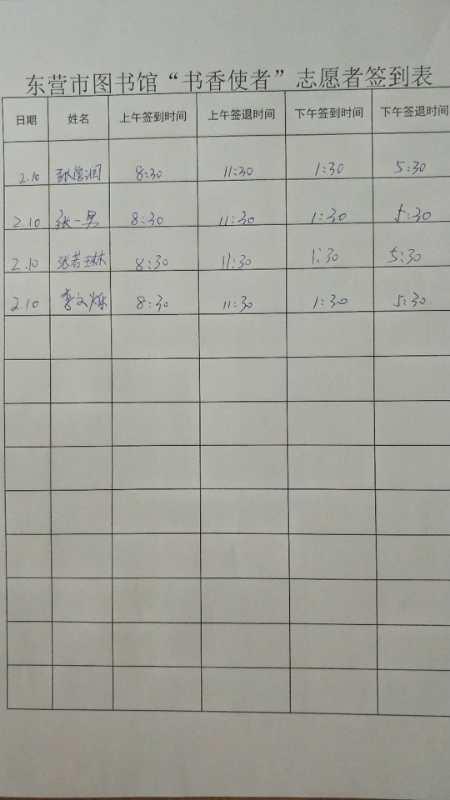 东营市图书馆“书香使者”志愿者签到表
日期 姓名 上午签到时间 上午签退时间 下午签到时间 下午签退时间
2.10 8:30 11:30 1:30 5:30
2.10 张一男 8:30 11:30 1:30 5:30
2.10 张若琳 8:30 11:30 1:30 5:30
2.10 李文烁 8:30 11:30 1:30 5:30